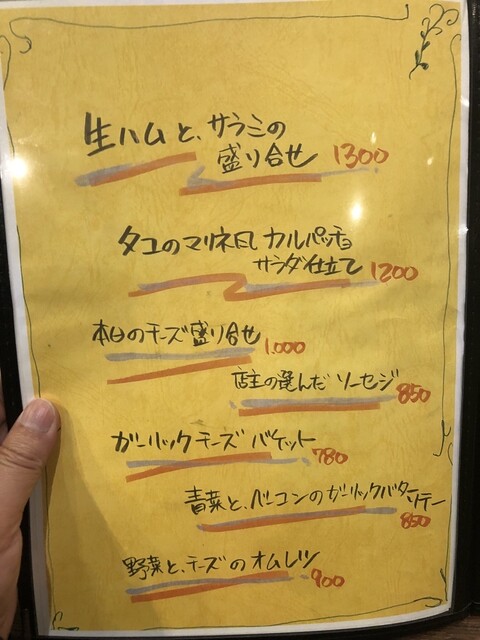 生ハムと、サラミの
盛り合せ 1300
タコのマリネ風 カルパッチョ
サラダ仕立て 1200
本日のチーズ盛り合せ 1,000
店主の選んだ ソーセジ 850
ガーリックチーズバケット 780
青菜と、ベーコンのガーリックバター
ソテー 850
野菜と、チーズのオムレツ 900